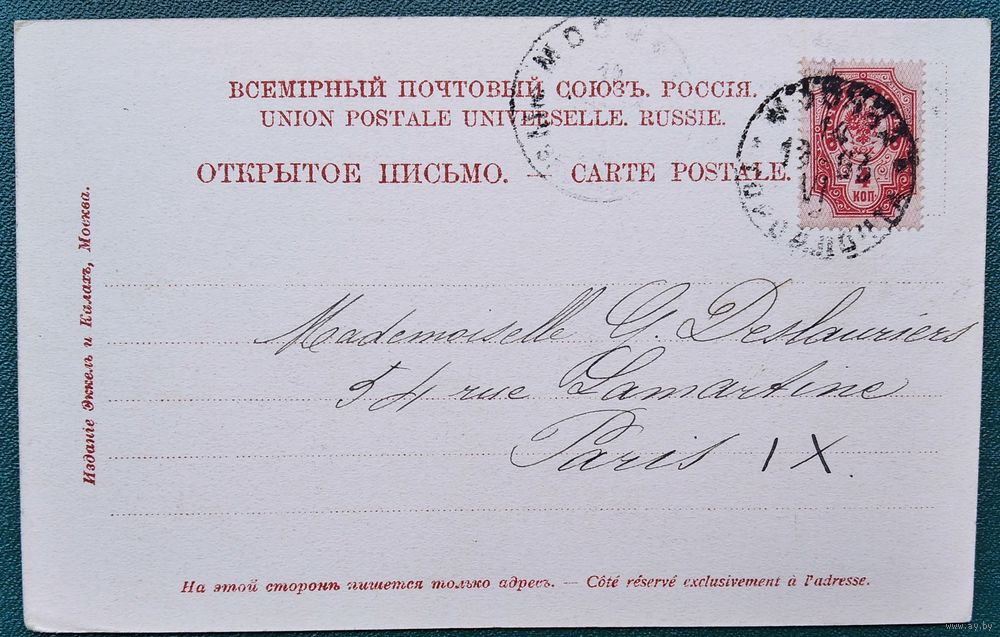 ВСЕМІРНЫЙ ПОЧТОВЫЙ СОЮЗЪ. РОССІЯ.
UNION POSTALE UNIVERSELLE. RUSSIE.
ОТКРЫТОЕ ПИСЬМО. — CARTE POSTALE.
4
КОП.
Mademoiselle G. Deslauriers
54 rue Lamartine
Paris IX.
На этой сторонѣ пишется только адресъ. — Côté réservé exclusivement à l'adresse.
Изданіе Эккель и Калахъ, Москва.
www.ay.by